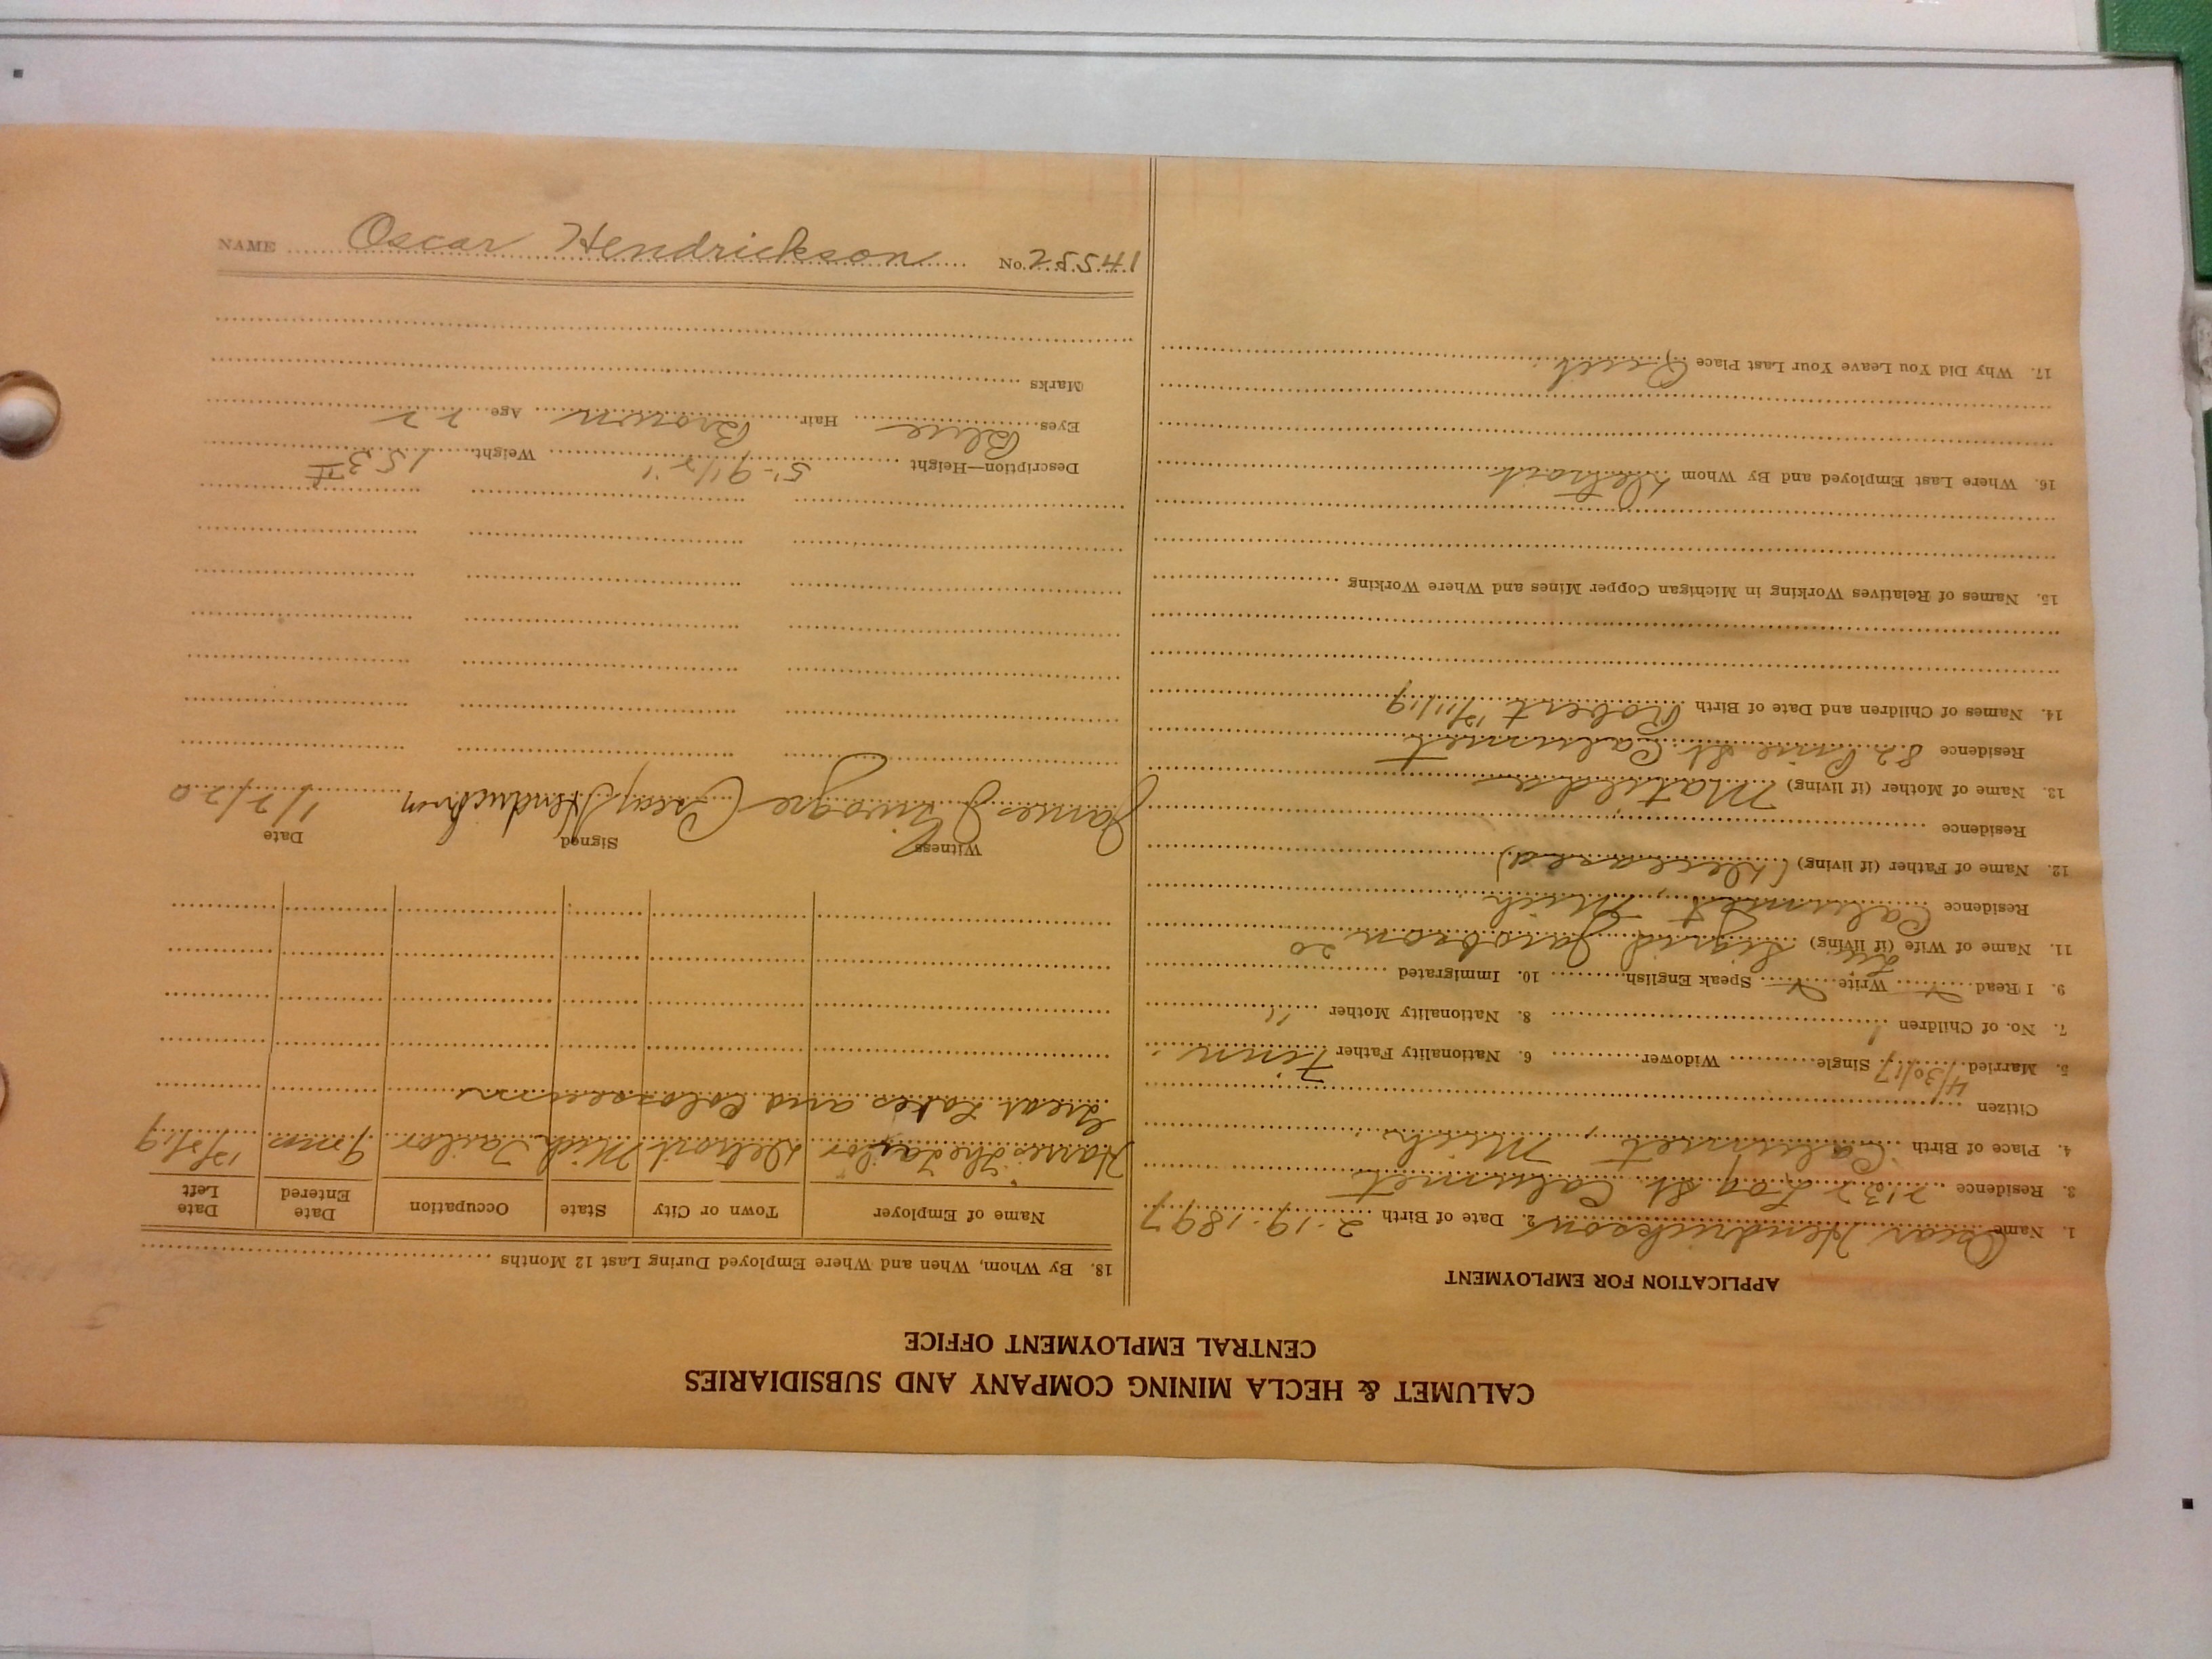 CALUMET & HECLA MINING COMPANY AND SUBSIDIARIES
CENTRAL EMPLOYMENT OFFICE
APPLICATION FOR EMPLOYMENT
1. Name Oscar Hendrickson 2. Date of Birth 2-19-1897
3. Residence Log St Calumet
4. Place of Birth Calumet, Mich.
Citizen
5. Married 4/30/17 Single Widower 6. Nationality Father Finn
7. No. of Children 1 8. Nationality Mother "
9. I Read Write Speak English 10. Immigrated
11. Name of Wife (if living) Sigrid Jacobson 20
Residence Calumet, Mich.
12. Name of Father (if living) (deceased)
Residence
13. Name of Mother (if living) Matilda
Residence 82 Pine St. Calumet
14. Names of Children and Date of Birth Robert 12/11/19
15. Names of Relatives Working in Michigan Copper Mines and Where Working
16. Where Last Employed and By Whom Detroit
17. Why Did You Leave Your Last Place Quit
18. By Whom, When and Where Employed During Last 12 Months
Name of Employer Town or City State Occupation Date Entered Date Left
Harris The Tailor Detroit Mich Tailor 9 mos
Great Lakes and
Witness Signed Date
James Oscar Hendrickson 1/2/20
Description—Height 5'-9 1/2" Weight 153 #
Eyes Blue Hair Brown Age 22
Marks
NAME Oscar Hendrickson No. 28541